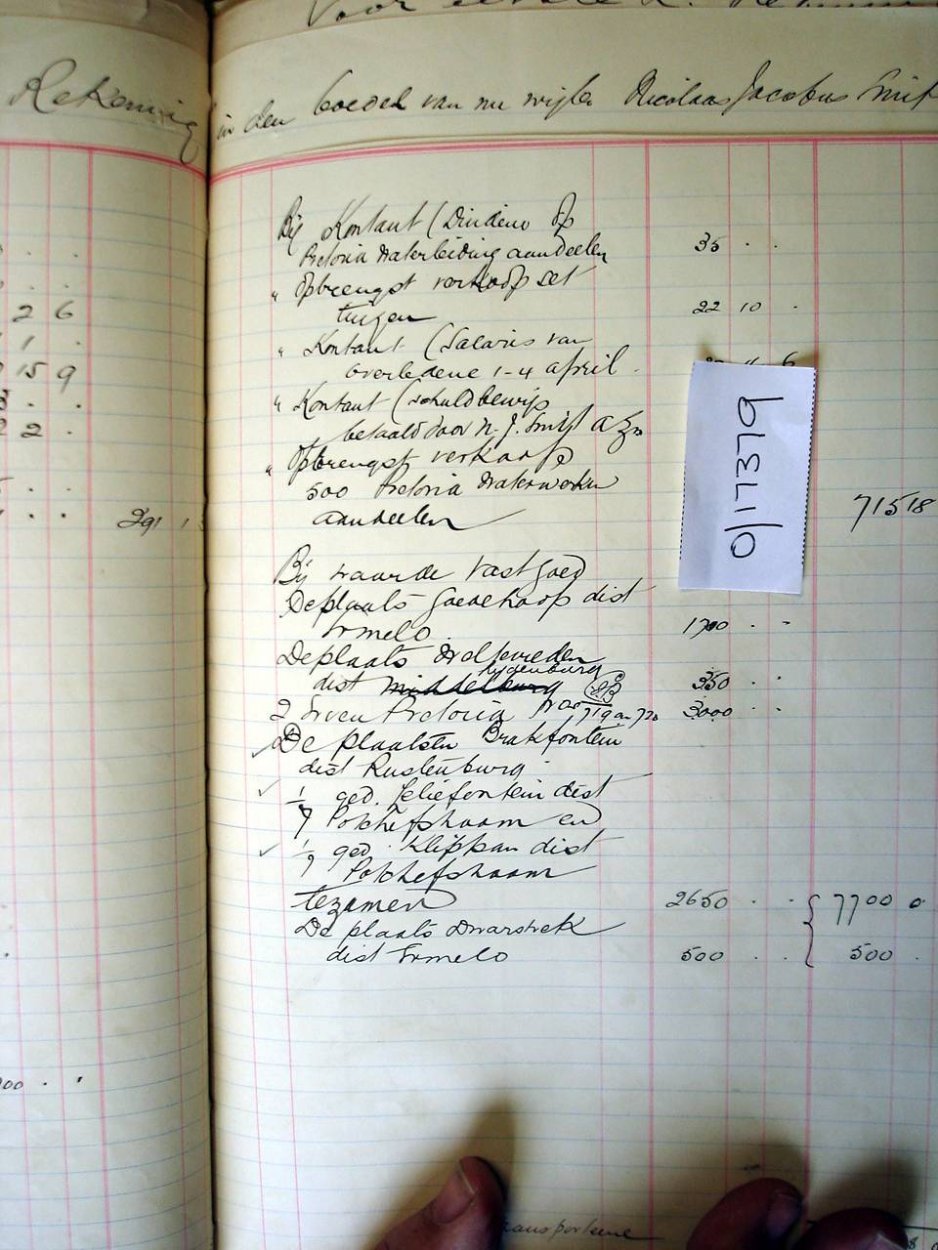 Voor eerste
Rekening in den boedel van nu wijlen Nicolaas Jacobus Smit
Bij Kontant (Dividend op
Pretoria Waterleiding aandeelen 35 . .
" Opbrengst verkoop set
tuigen 22 10 .
" Kontant (Salaris van
overledene 1-4 april .
" Kontant (schuldbewijs
betaald door N. J. Smit a Zn
" Opbrengst verkoop
500 Pretoria Waterwerken
aandeelen 715 18
Bij waarde vastgoed
De plaats Goedehoop dist
Ermelo 1700 . .
De plaats Weltevreden
Lydenburg
dist Middelburg 350 . .
2 Erven Pretoria Nos 719 an 720 3000 . .
De plaatsen Brakfontein
dist Rustenburg
1/7 ged. Geliefontein dist
Potchefstroom en
1/7 ged. Klippan dist
Potchefstroom
tezamen 2650 . . 7700 0
De plaats Dwarstrek
dist Ermelo 500 . . 500 .
0/17379
2 6
1 .
15 9
2 .
291 1
00 . .